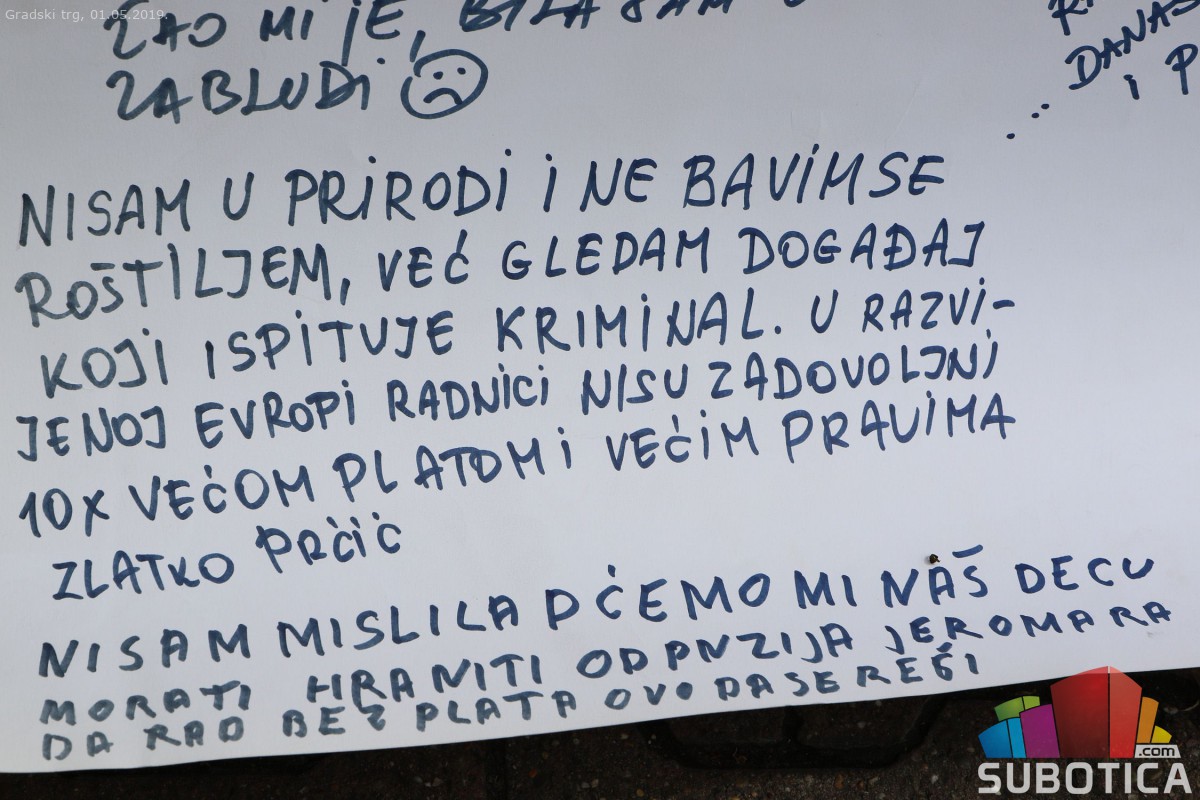 Gradski trg, 01.05.2019.
ŽAO MI JE, BILA SAM U
ZABLUDI
DANAS
I P
NISAM U PRIRODI I NE BAVIM SE
ROŠTILJEM, VEĆ GLEDAM DOGAĐAJ
KOJI ISPITUJE KRIMINAL. U RAZVI-
JENOJ EVROPI RADNICI NISU ZADOVOLJNI
10X VEĆOM PLATOM I VEĆIM PRAVIMA
ZLATKO PRČIĆ
NISAM MISLILA DĆEMO MI NAŠ DECU
MORATI HRANITI OD PNZIJA JEROMARA
DA RAD BEZ PLATA OVO DA SE REŠI
.com
SUBOTICA